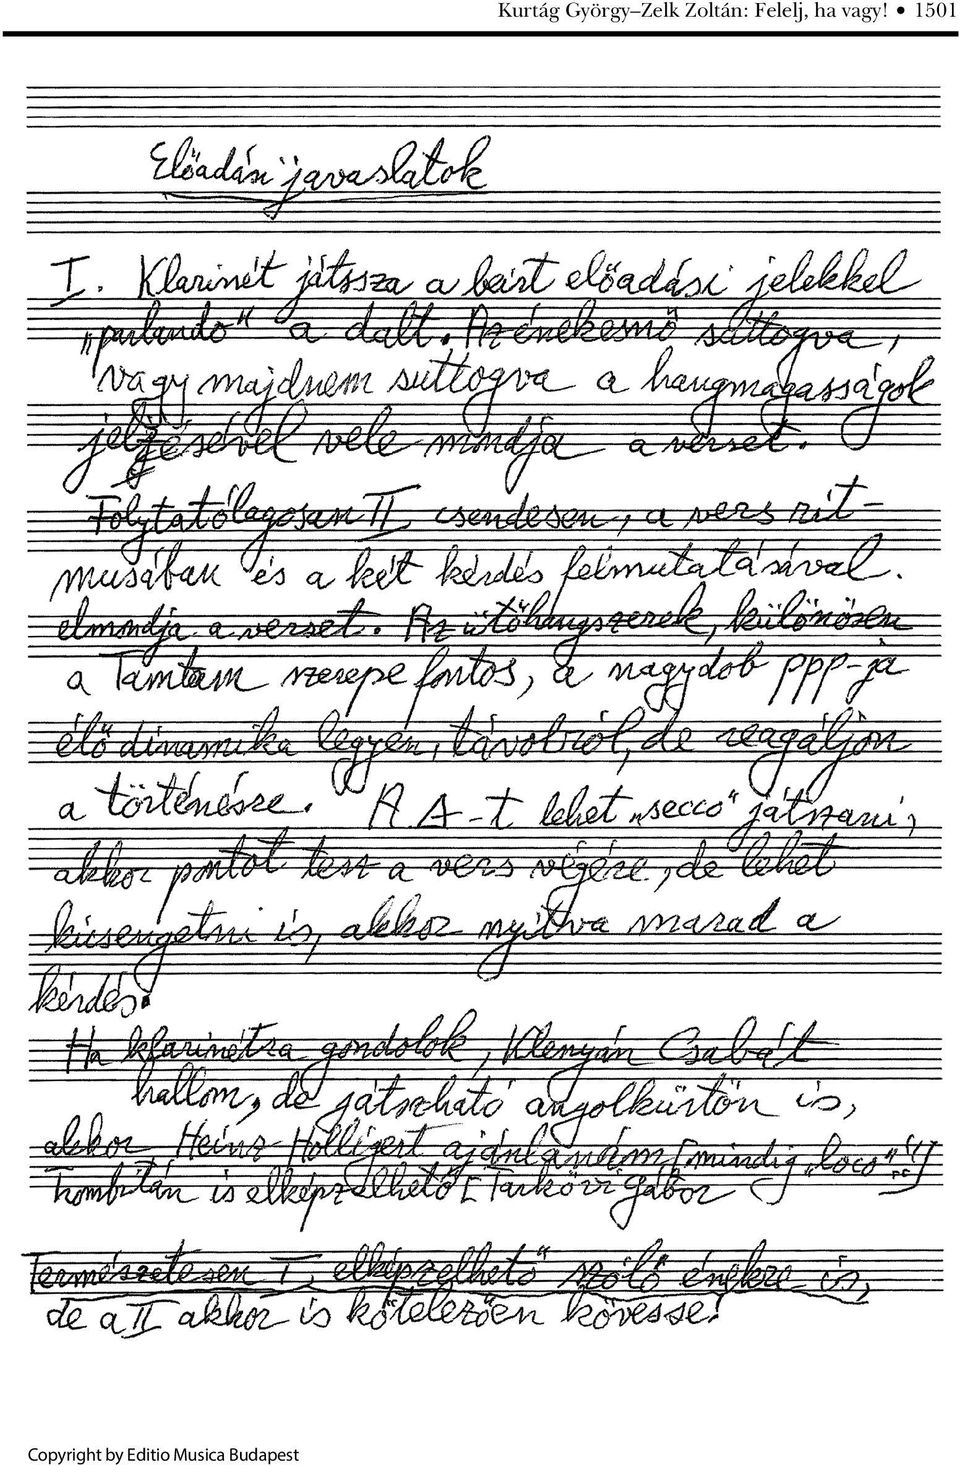 Kurtág György–Zelk Zoltán: Felelj, ha vagy! • 1501
Előadási javaslatok
I. Klarinét játssza a beírt előadási jelekkel
„parlando" a dalt. Az énekesnő suttogva,
vagy majdnem suttogva a hangmagasságok
jelzésével vele mondja a verset.
Folytatólagosan II csendesen, a vers rit-
musában és a két kérdés felmutatásával.
elmondja a verset. Az ütőhangszerek, különösen
a Tamtam szerepe fontos, a nagydob ppp-ja
élő dinamika legyen, távolról, de reagáljon
a történésre. A A-t lehet „secco" játszani,
akkor pontot tesz a vers végére, de lehet
kicsengetni is, akkor nyitva marad a
kérdés.
Ha klarinétra gondolok, Klenyán Csabát
hallom, de játszható angolkürtön is,
akkor Heinz Holligert ajánlanám [mindig „loco"!]
Trombitán is elképzelhető [Tarkövi Gábor
Természetesen I, elképzelhető szóló énekre is,
de a II akkor is kötelezően kövesse!
Copyright by Editio Musica Budapest